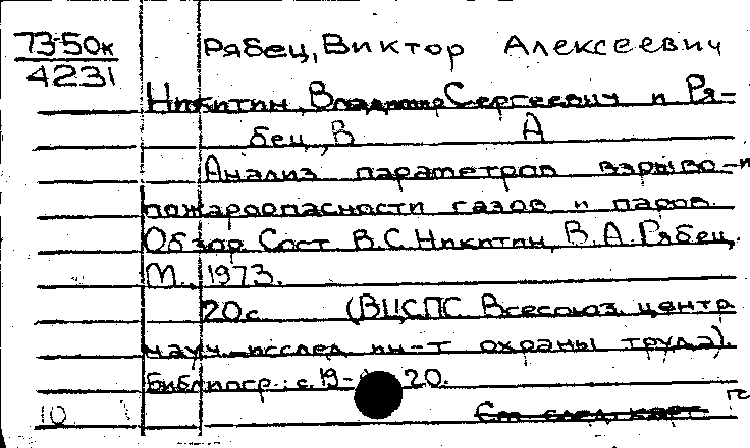 73-50к
4231
Рябец, Виктор Алексеевич
Никитин, Владимир Сергеевич и Ря-
бец, В А
Анализ параметров взрыво- и
пожароопасности газов и паров.
Обзор Сост В.С.Никитин, В.А.Рябец,
М., 1973.
20с. (ВЦСПС Всесоюз. центр
науч.-исслед ин-т охраны труда).
Библиогр.: с. 19- 20.
10 См след. карт